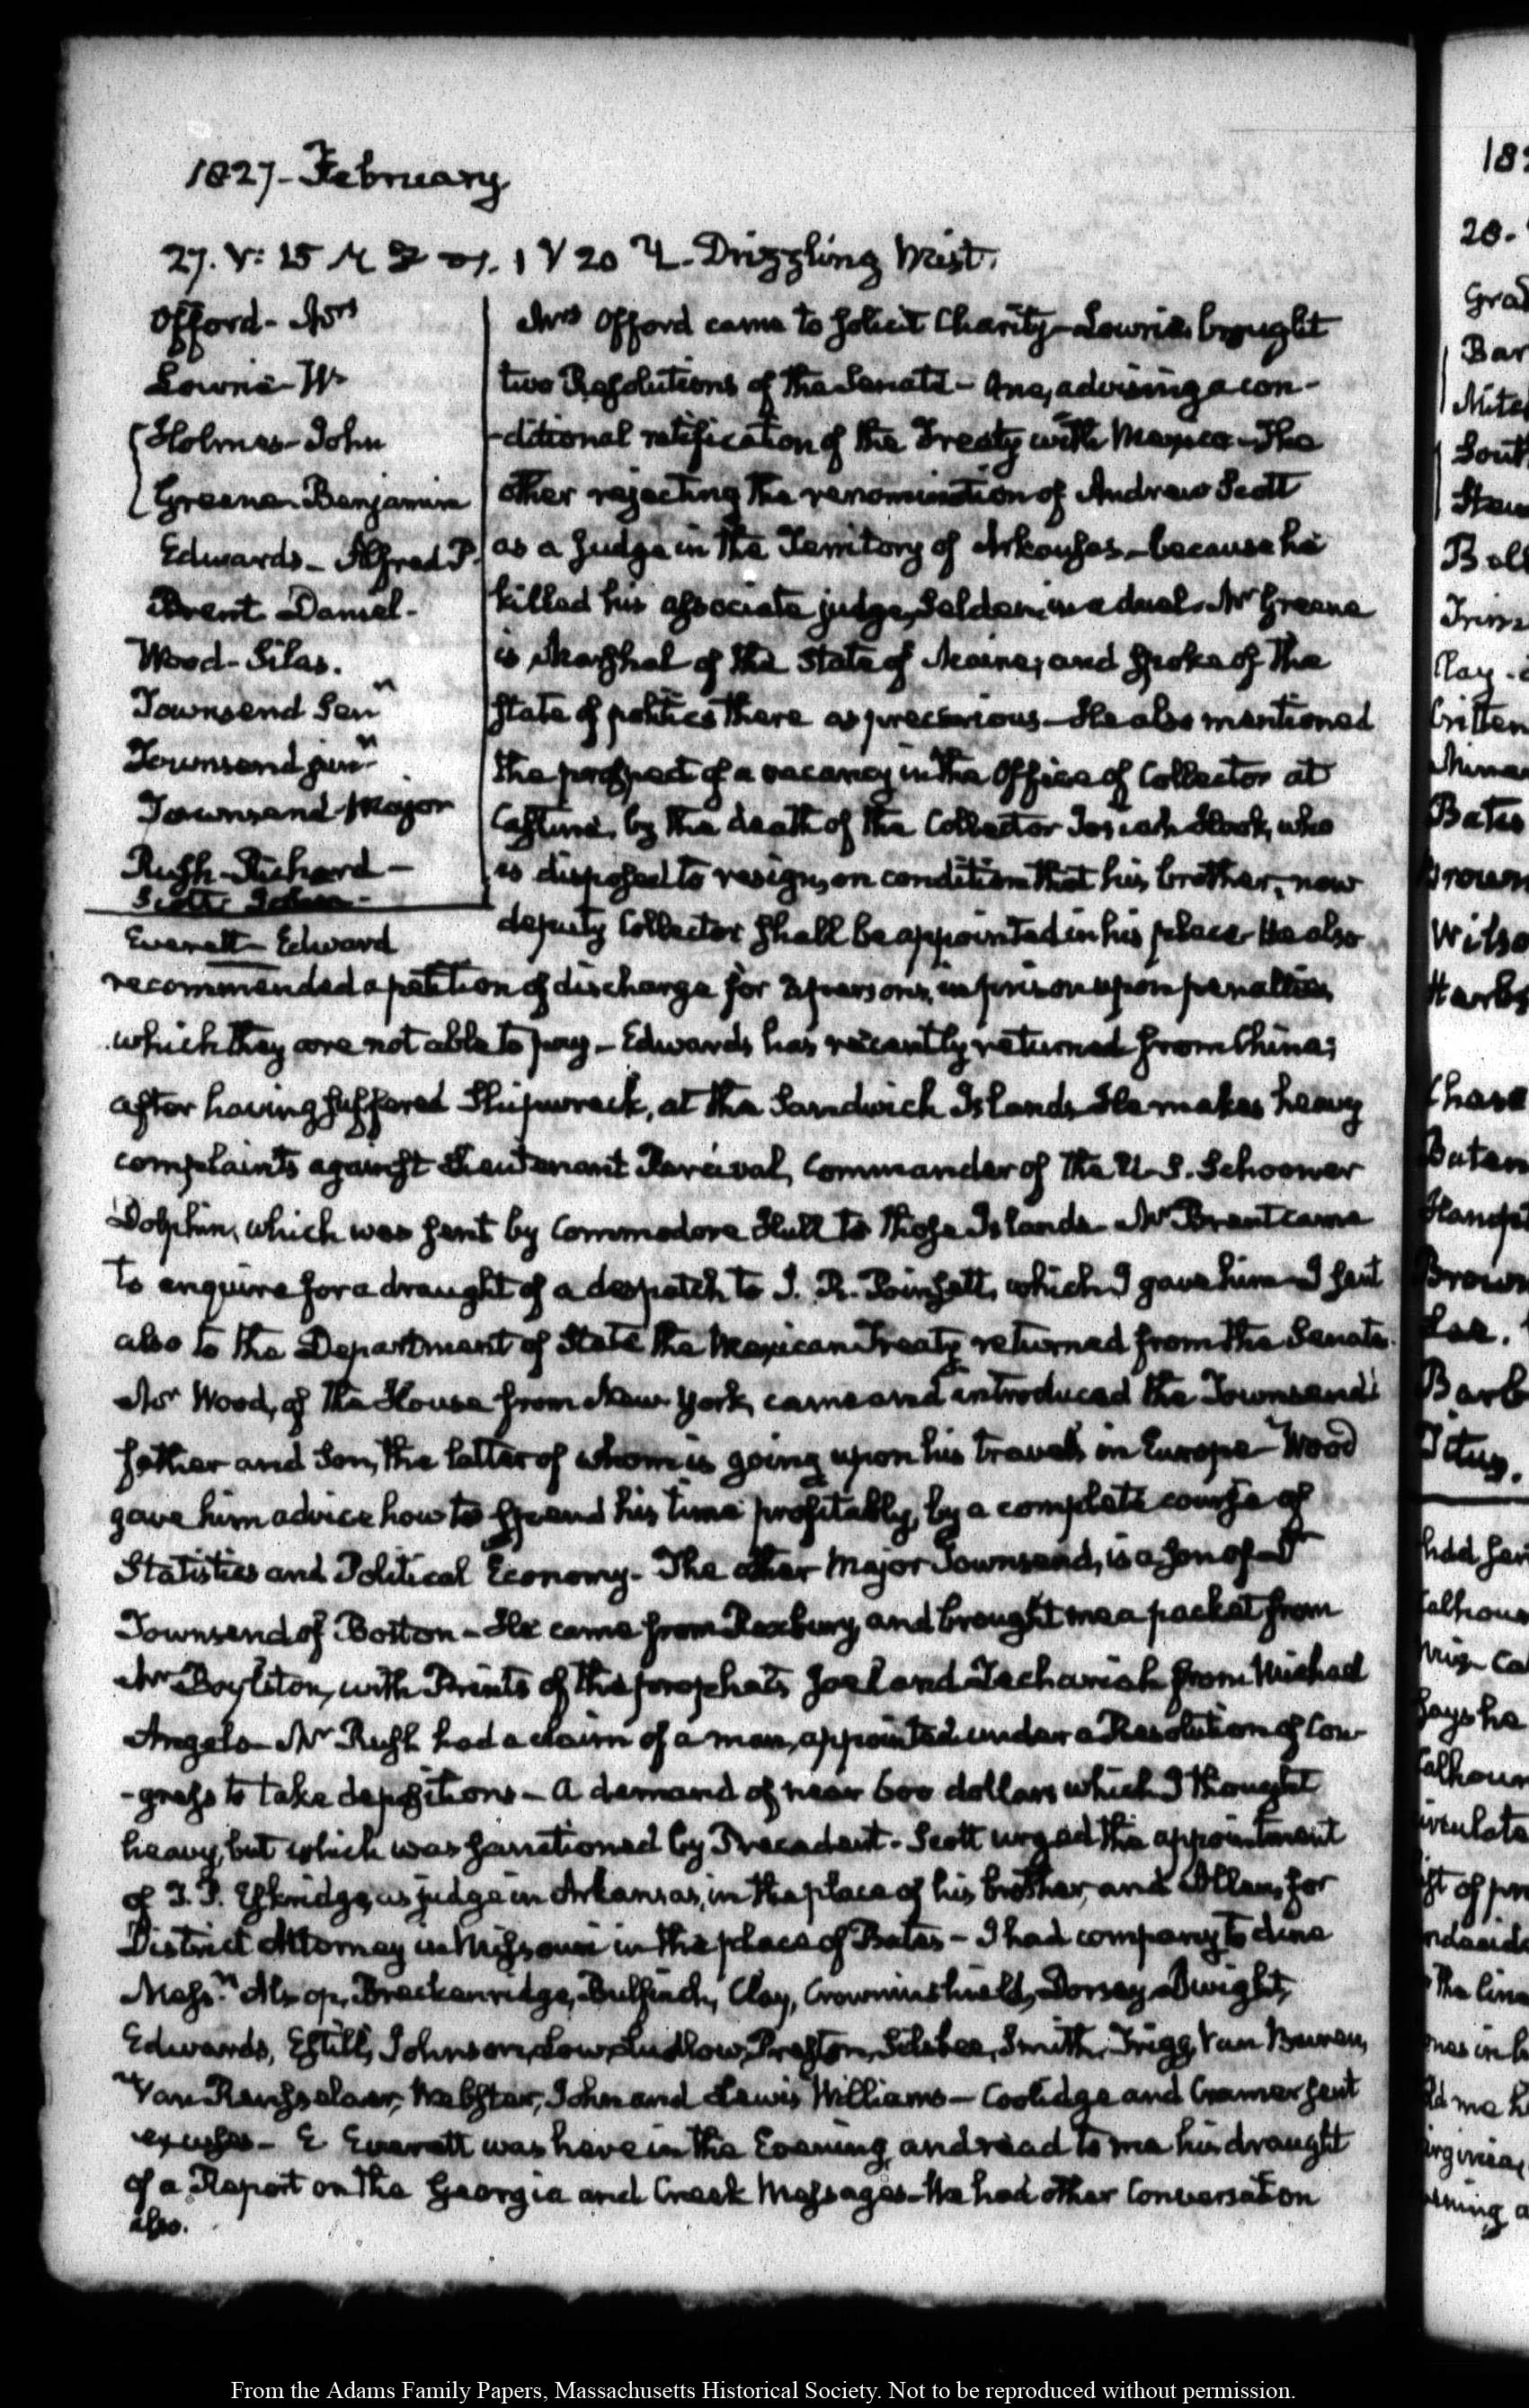 1827 - February
27. V: 15 1 V 20 Drizzling Mist.
Offord - Mrs
Lowrie - W.
Holmes - John
Greene - Benjamin
Edwards - Alfred P.
Brent Daniel -
Wood - Silas.
Townsend Senr
Townsend junr
Townsend - Major
Rush - Richard -
Scott John -
Everett - Edward
Mrs Offord came to solicit Charity - Lowrie brought
two Resolutions of the Senate - One, advising a con-
-ditional ratification of the Treaty with Mexico - The
other rejecting the renomination of Andrew Scott
as a Judge in the Territory of Arkansas - because he
killed his associate judge, Selden, in a duel. Mr Greene
is Marshal of the State of Maine, and spoke of the
state of politics there as precarious - He also mentioned
the prospect of a vacancy in the Office of Collector at
Castine, by the death of the Collector Josiah Hook, who
is disposed to resign, on condition that his brother, now
deputy Collector shall be appointed in his place. He also
recommended a petition of discharge for persons, in prison upon penalties
which they are not able to pay - Edwards has recently returned from China;
after having suffered Shipwreck, at the Sandwich Islands. He makes heavy
complaints against Lieutenant Percival, Commander of the U.S. Schooner
Dolphin, which was sent by Commodore Hull to those Islands - Mr Brent came
to enquire for a draught of a despatch to J. R. Poinsett, which I gave him - I sent
also to the Department of State the Mexican Treaty returned from the Senate.
Mr Wood, of the House from New York, came and introduced the Townsends
father and Son, the latter of whom is going upon his travels in Europe - Wood
gave him advice how to spend his time profitably, by a complete course of
Statistics and Political Economy - The other Major Townsend, is a son of Dr
Townsend of Boston - He came from Roxbury, and brought me a packet from
Mr Boylston, with Prints of the prophets Joel and Zechariah from Michael
Angelo - Mr Rush had a claim of a man, appointed under a Resolution of Con-
-gress to take depositions - A demand of near 600 dollars which I thought
heavy, but which was sanctioned by Precedent - Scott urged the appointment
of T. P. Eskridge, as judge in Arkansas, in the place of his brother, and Allen, for
District Attorney in Missouri in the place of Bates - I had company to dine
Messrs Alsop, Breckenridge, Bulfinch, Clay, Crowninshield, Dorsey, Dwight,
Edwards, Estill, Johnson, Low, Ludlow, Preston, Silsbee, Smith, Trigg, Van Buren,
Van Rensselaer, Webster, John and Lewis Williams - Coolidge and Cramer sent
excuses - E Everett was here in the Evening, and read to me his draught
of a Report on the Georgia and Creek Messages - We had other Conversation
also.
From the Adams Family Papers, Massachusetts Historical Society. Not to be reproduced without permission.